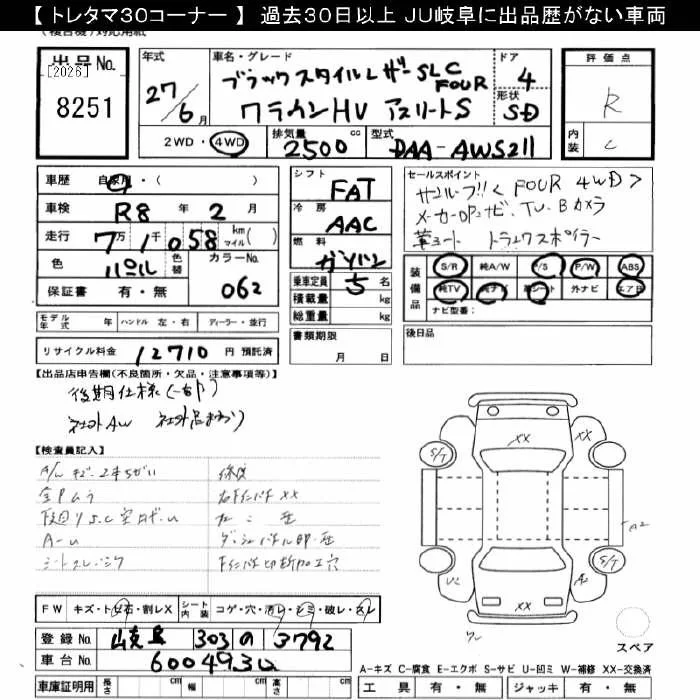 【 トレタマ30コーナー 】 過去30日以上 JU岐阜に出品歴がない車両
出品No.
[2026]
8251
年式
27/6月
車名・グレード
ブラックスタイルレザー SLC FOUR
クラウンHV アスリートS
ドア
4
形状
SD
評価点
R
内装
C
2WD・4WD
排気量
2500 cc
型式
DAA-AWS211
車歴 自家用・( )
車検 R8 年 2 月
走行 7万1千058 km マイル( )
色 パール 色替
カラーNo. 062
保証書 有・無
シフト FAT
冷房 AAC
燃料 ガソリン
乗車定員 5 名
積載量 kg
総重量 kg
書類期限
月 日
セールスポイント
サンルーフ!! < FOUR 4WD >
メーカーOPナビ・TV・Bカメラ
革シート トランクスポイラー
装備品
S/R 純A/W P/S P/W ABS
純TV 純ナビ 革シート 外ナビ エアB
ナビ型番:
モデル年式 年 ハンドル 左・右 ディーラー・並行
後日品
リサイクル料金 12710 円 預託済
【出品店申告欄(不良箇所・欠品・注意事項等)】
後期仕様(一部)
社外AW
【検査員記入】
全Pムラ
A-U
右Fインパネ XX
XX
XX
S/T
S/T
S/T
S/T
A2
U2
XX
FW キズ・トビ石・割レX
シート内装 コゲ・穴・汚レ・シミ・破レ・スレ
登録No. 岐阜 303 の 3792
車台No. 6004930
スペア
A-キズ C-腐食 E-エクボ S-サビ U-凹ミ W-補修 XX-交換済
車庫証明用 長さ cm 幅 cm 高さ cm
工具 有・無 ジャッキ 有・無